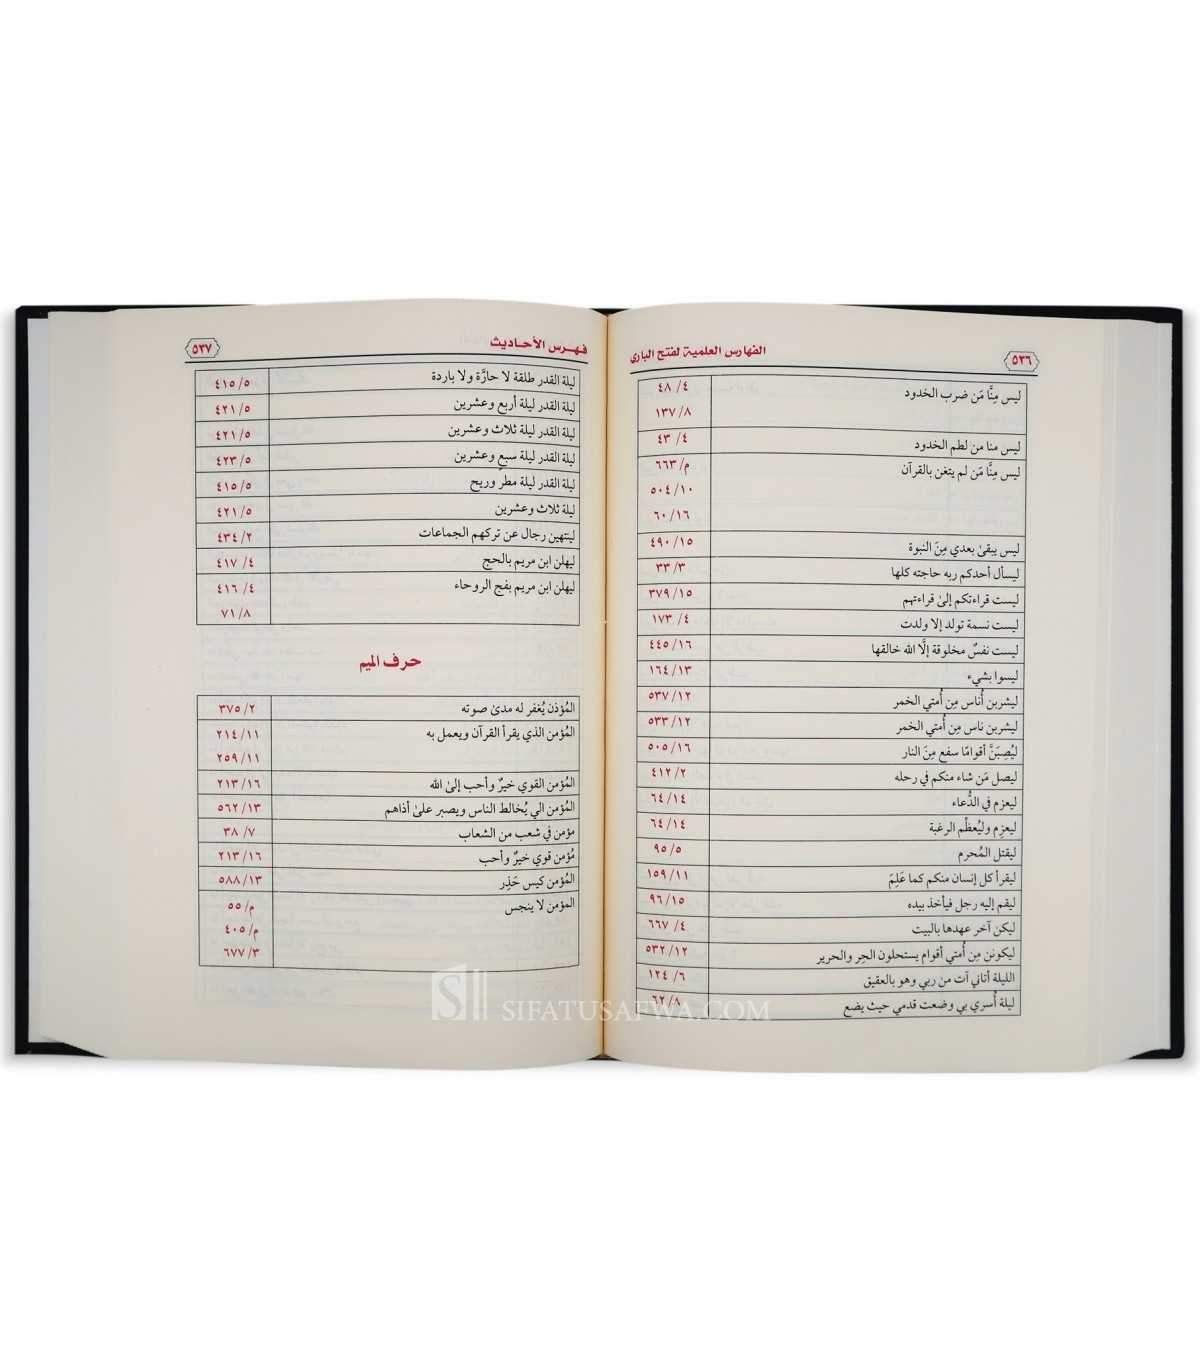 ٥٣٦
الفهارس العلمية لفتح الباري
ليس مِنَّا مَن ضرب الخدود ٤/ ٤٨
٨/ ١٣٧
ليس منا من لطم الخدود ٤/ ٤٣
ليس مِنَّا مَن لم يتغن بالقرآن م/ ٦٦٣
١٠/ ٥٠٤
١٦/ ٦٠
ليس يبقىٰ بعدي مِنَ النبوة ١٥/ ٤٩٠
ليسأل أحدكم ربه حاجته كلها ٣/ ٣٣
ليست قراءتكم إلىٰ قراءتهم ١٥/ ٣٧٩
ليست نسمة تولد إلا ولدت ٤/ ١٧٣
ليست نفسٌ مخلوقة إلَّا الله خالقها ١٦/ ٤٤٥
ليسوا بشيء ١٣/ ١٦٤
ليشربن أُناس مِن أُمتي الخمر ١٢/ ٥٣٧
ليشربن ناس مِن أُمتي الخمر ١٢/ ٥٣٣
ليُصِبَنَّ أقوامًا سفع مِنَ النار ١٦/ ٥٠٥
ليصل مَن شاء منكم في رحله ٢/ ٤١٢
ليعزم في الدُّعاء ١٤/ ٦٤
ليعزِم وليُعظِّم الرغبة ١٤/ ٦٤
ليقتل المُحرم ٥/ ٩٥
ليقرأ كل إنسان منكم كما عَلِمَ ١١/ ١٥٩
ليقم إليه رجل فيأخذ بيده ١٥/ ٩٦
ليكن آخر عهدها بالبيت ٤/ ٦٦٧
ليكونن مِن أُمتي أقوام يستحلون الحِر والحرير ١٢/ ٥٣٢
الليلة أتاني آت من ربي وهو بالعقيق ٦/ ١٢٤
ليلة أُسري بي وضعت قدمي حيث يضع ٨/ ٦٢
فهرس الأحاديث
٥٣٧
ليلة القدر طلقة لا حارَّة ولا باردة ٥/ ٤١٥
ليلة القدر ليلة أربع وعشرين ٥/ ٤٢١
ليلة القدر ليلة ثلاث وعشرين ٥/ ٤٢١
ليلة القدر ليلة سبع وعشرين ٥/ ٤٢٣
ليلة القدر ليلة مطر وريح ٥/ ٤١٥
ليلة ثلاث وعشرين ٥/ ٤٢١
لينتهين رجال عن تركهم الجماعات ٢/ ٤٣٤
ليهلن ابن مريم بالحج ٤/ ٤١٧
ليهلن ابن مريم بفج الروحاء ٤/ ٤١٦
٨/ ٧١
حرف الميم
المُؤذن يُغفر له مدىٰ صوته ٢/ ٣٧٥
المُؤمن الذي يقرأ القرآن ويعمل به ١١/ ٢١٤
١١/ ٢٥٩
المُؤمن القوي خيرٌ وأحب إلىٰ الله ١٦/ ٢١٣
المُؤمن الي يُخالط الناس ويصبر علىٰ أذاهم ١٣/ ٥٦٢
مؤمن في شعب من الشعاب ٧/ ٣٨
مُؤمن قوي خيرٌ وأحب ١٦/ ٢١٣
المُؤمن كيس حَذِر ١٣/ ٥٨٨
المؤمن لا ينجس م/ ٥٥
م/ ٤٠٥
٣/ ٦٧٧
SIFATUSAFWA.COM